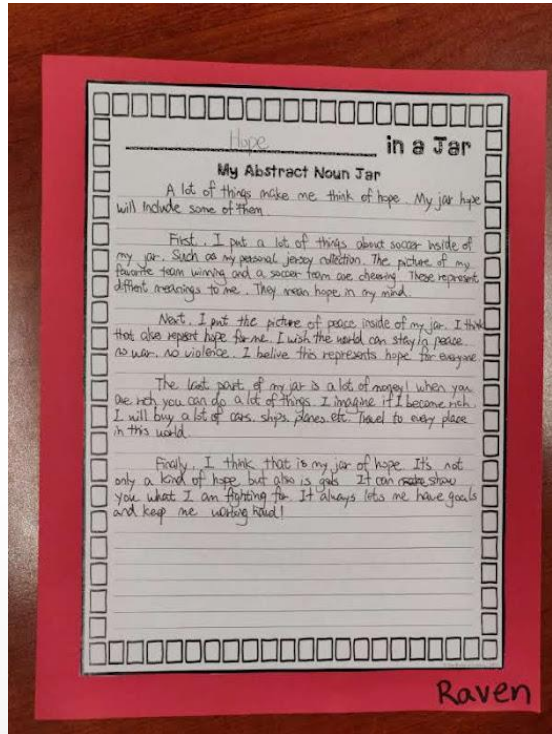 Hope in a Jar
My Abstract Noun Jar
A lot of things make me think of hope. My jar hope
will include some of them.
First, I put a lot of things about soccer inside of
my jar. Such as my personal jersey collection. The picture of my
favorite team winning and a soccer team are cheering. These represent
diffent meanings to me. They mean hope in my mind.
Next, I put the picture of peace inside of my jar. I think
that also repsent hope for me. I wish the world can stay in peace.
no war, no violence. I belive this represents hope for everyone.
The last part of my jar is a lot of money! when you
are rich you can do a lot of things. I imagine if I become rich.
I will buy a lot of cars, ships, planes etc. Travel to every place
in this world.
Finally, I think that is my jar of hope. It's not
only a kind of hope but also is goals. It can show
you what I am fighting for. It always lets me have goals
and keep me working hard!
Raven